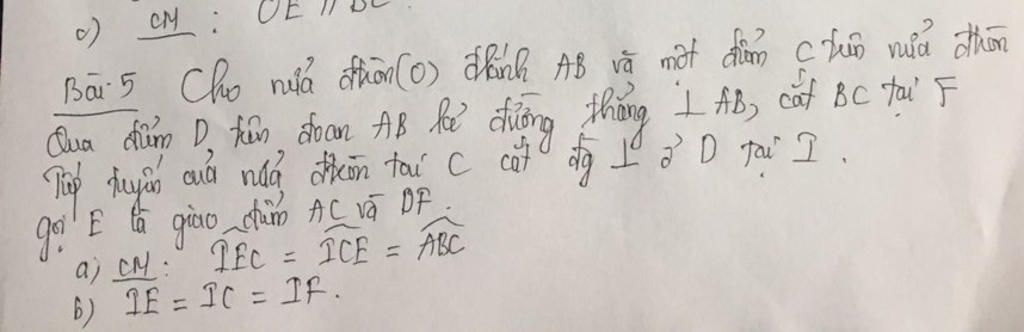 c) CM : OE // BC.
Bài 5 Cho nửa đtròn(O) đkính AB và một điểm C trên nửa đtròn
Qua điểm D trên đoạn AB kẻ đường thẳng ⊥ AB, cắt BC tại F
Tiếp tuyến của nửa đtròn tại C cắt đg ⊥ ở D tại I.
gọi E là giao điểm AC và DF.
a) CM: $\widehat{IEC}$ = $\widehat{ICE}$ = $\widehat{ABC}$
b) IE = IC = IF.